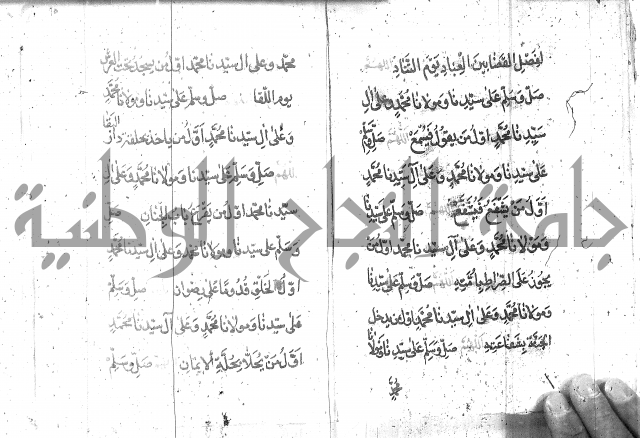 لفصل القضا بين العباد يوم التناد اللهم
صل وسلم على سيدنا ومولانا محمد وعلى ال
سيدنا محمد اول من يقول فيسمع اللهم صل وسلم
على سيدنا ومولانا محمد وعلى ال سيدنا محمد
اول من يشفع فيشفع اللهم صل وسلم على سيدنا
ومولانا محمد وعلى ال سيدنا محمد اول من
يجوز على الصراط بامته اللهم صل وسلم على سيدنا
ومولانا محمد وعلى ال سيدنا محمد اول من يدخل
الجنة بشفاعته اللهم صل وسلم على سيدنا ومولانا
محمد
محمد وعلى ال سيدنا محمد اول من يسجد تحت العرش
يوم اللقا صل وسلم على سيدنا ومولانا محمد
وعلى ال سيدنا محمد اول من ياخذ بحلقة دار البقا
اللهم صل وسلم على سيدنا ومولانا محمد وعلى ال
سيدنا محمد اول من يقرع باب الجنان صل
وسلم على سيدنا ومولانا محمد وعلى ال سيدنا محمد
اول الخلق قدوما على رضوان صل وسلم
على سيدنا ومولانا محمد وعلى ال سيدنا محمد
اول من يحلا بحلة الايمان صل وسلم
جامعة النجاح الوطنية